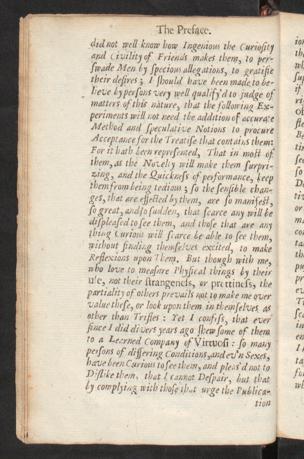 The Preface.
did not well know how Ingenious the Curiosity
and Civility of Friends makes them, to per-
swade Men by specious allegations, to gratifie
their desires; I should have been made to be-
lieve by persons very well qualify'd to judge of
matters of this nature, that the following Ex-
periments will not need the addition of accurate
Method and speculative Notions to procure
Acceptance for the Treatise that contains them:
For it hath been represented, That in most of
them, as the Novelty will make them surpri-
zing, and the Quickness of performance, keep
them from being tedious; so the sensible chan-
ges, that are effected by them, are so manifest,
so great, and so sudden, that scarce any will be
displeased to see them, and those that are any
thing Curious will scarce be able to see them,
without finding themselves excited, to make
Reflexions upon Them. But though with me,
who love to measure Physical things by their
use, not their strangeness, or prettiness, the
partiality of others prevails not to make me over
value these, or look upon them in themselves as
other than Trifles: Yet I confess, that ever
since I did divers years ago shew some of them
to a Learned Company of Virtuosi: so many
persons of differing Conditions, and ev'n Sexes,
have been Curious to see them, and pleas'd not to
Dislike them, that I cannot Despair, but that
by complying with those that urge the Publica-
tion